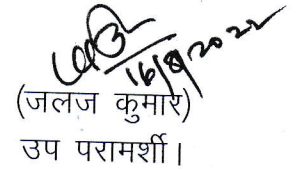 16/8/2022
(जलज कुमार)
उप परामर्शी।